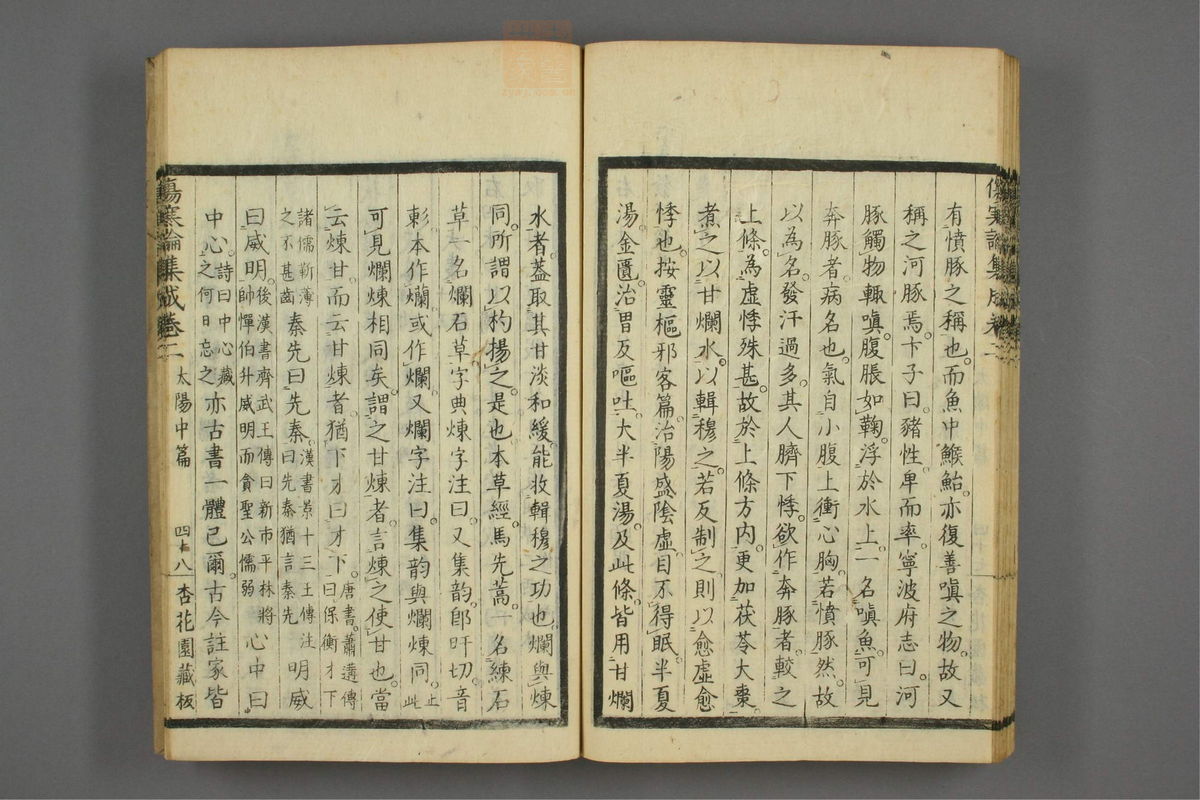 有憤豚之稱也。而魚中鯸鮐亦復善嗔之物。故又
稱之河豚焉。卞子曰豬性卑而率。寧波府志曰河
豚觸物輒嗔。腹脹如鞠。浮於水上。一名嗔魚。可見
奔豚者病名也。氣自小腹上衝心胸。若憤豚然。故
以為名。發汗過多。其人臍下悸。欲作奔豚者。較之
上條。為虛悸殊甚。故於上條方內。更加茯苓大棗。
煮之以甘爛水。以輯穆之。若反制之。則以愈虛愈
悸也。按靈樞邪客篇。治陽盛陰虛。目不得眠。半夏
湯。金匱治胃反嘔吐。大半夏湯。及此條。皆用甘爛
水者。蓋取其甘淡和緩。能收輯穆之功也。爛與煉
同。所謂以杓揚之是也。本草經。馬先蒿。一名練石
草。一名爛石草。字典煉字注曰。又集韵。郎旰切。音
爤。本作爤。或作爛。又爛字注曰。集韵與爤煉同。上此
可見爛煉相同矣。謂之甘煉者。言煉之使甘也。當
云煉甘。而云甘煉者。猶下才曰才下。唐書。蕭遘傳曰保衡才下
諸儒靳薄之不甚齒 秦先曰先秦。漢書景十三王傳注曰先秦猶言秦先 明威
曰威明。後漢書齊武王傳曰新市平林將帥憚伯升威明而貪聖公懦弱 心中曰
中心。詩曰中心藏之何日忘之 亦古書一體已爾。古今註家皆
傷寒論集成卷二 太陽中篇 四十八 杏花園藏板